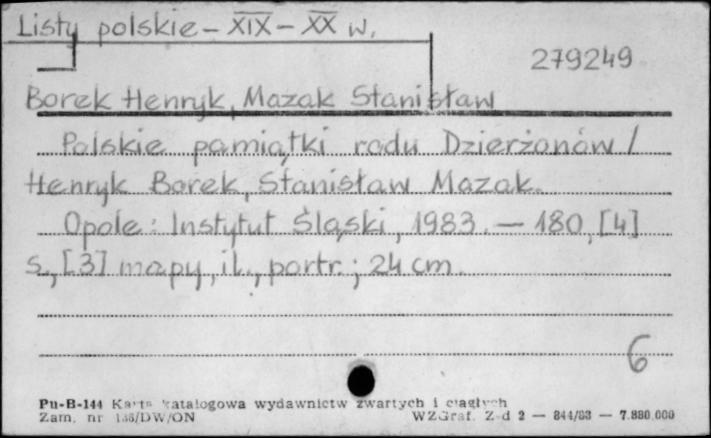 Listy polskie – XIX – XX w.
279249
Borek Henryk, Mazak Stanisław
Polskie pamiątki rodu Dzierżonów /
Henryk Borek, Stanisław Mazak.
Opole : Instytut Śląski, 1983. – 180, [4]
s., [3] mapy, il., portr. ; 24 cm.
6
Pu-B-144 Karta katalogowa wydawnictw zwartych i ciągłych
Zam. nr 136/DW/ON WZGraf. Z-d 2 — 844/83 — 7.880.000